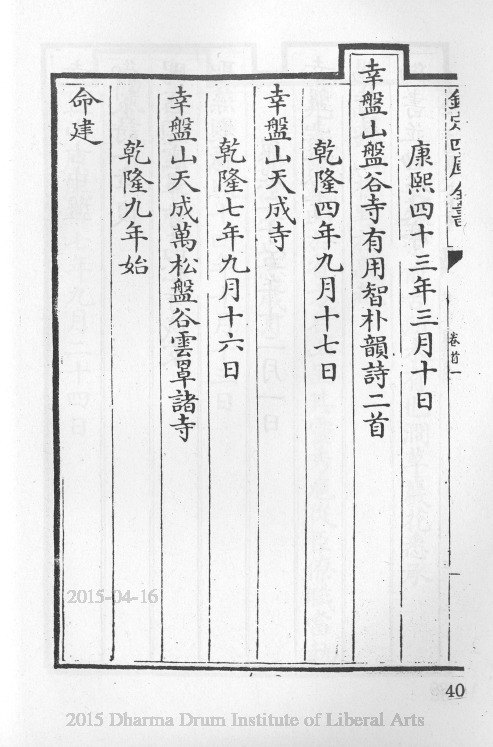 欽定四庫全書
卷首一
康熙四十三年三月十日
幸盤山盤谷寺有用智朴韻詩二首
乾隆四年九月十七日
幸盤山天成寺
乾隆七年九月十六日
幸盤山天成萬松盤谷雲罩諸寺
乾隆九年始
命建
2015-04-16
40
2015 Dharma Drum Institute of Liberal Arts